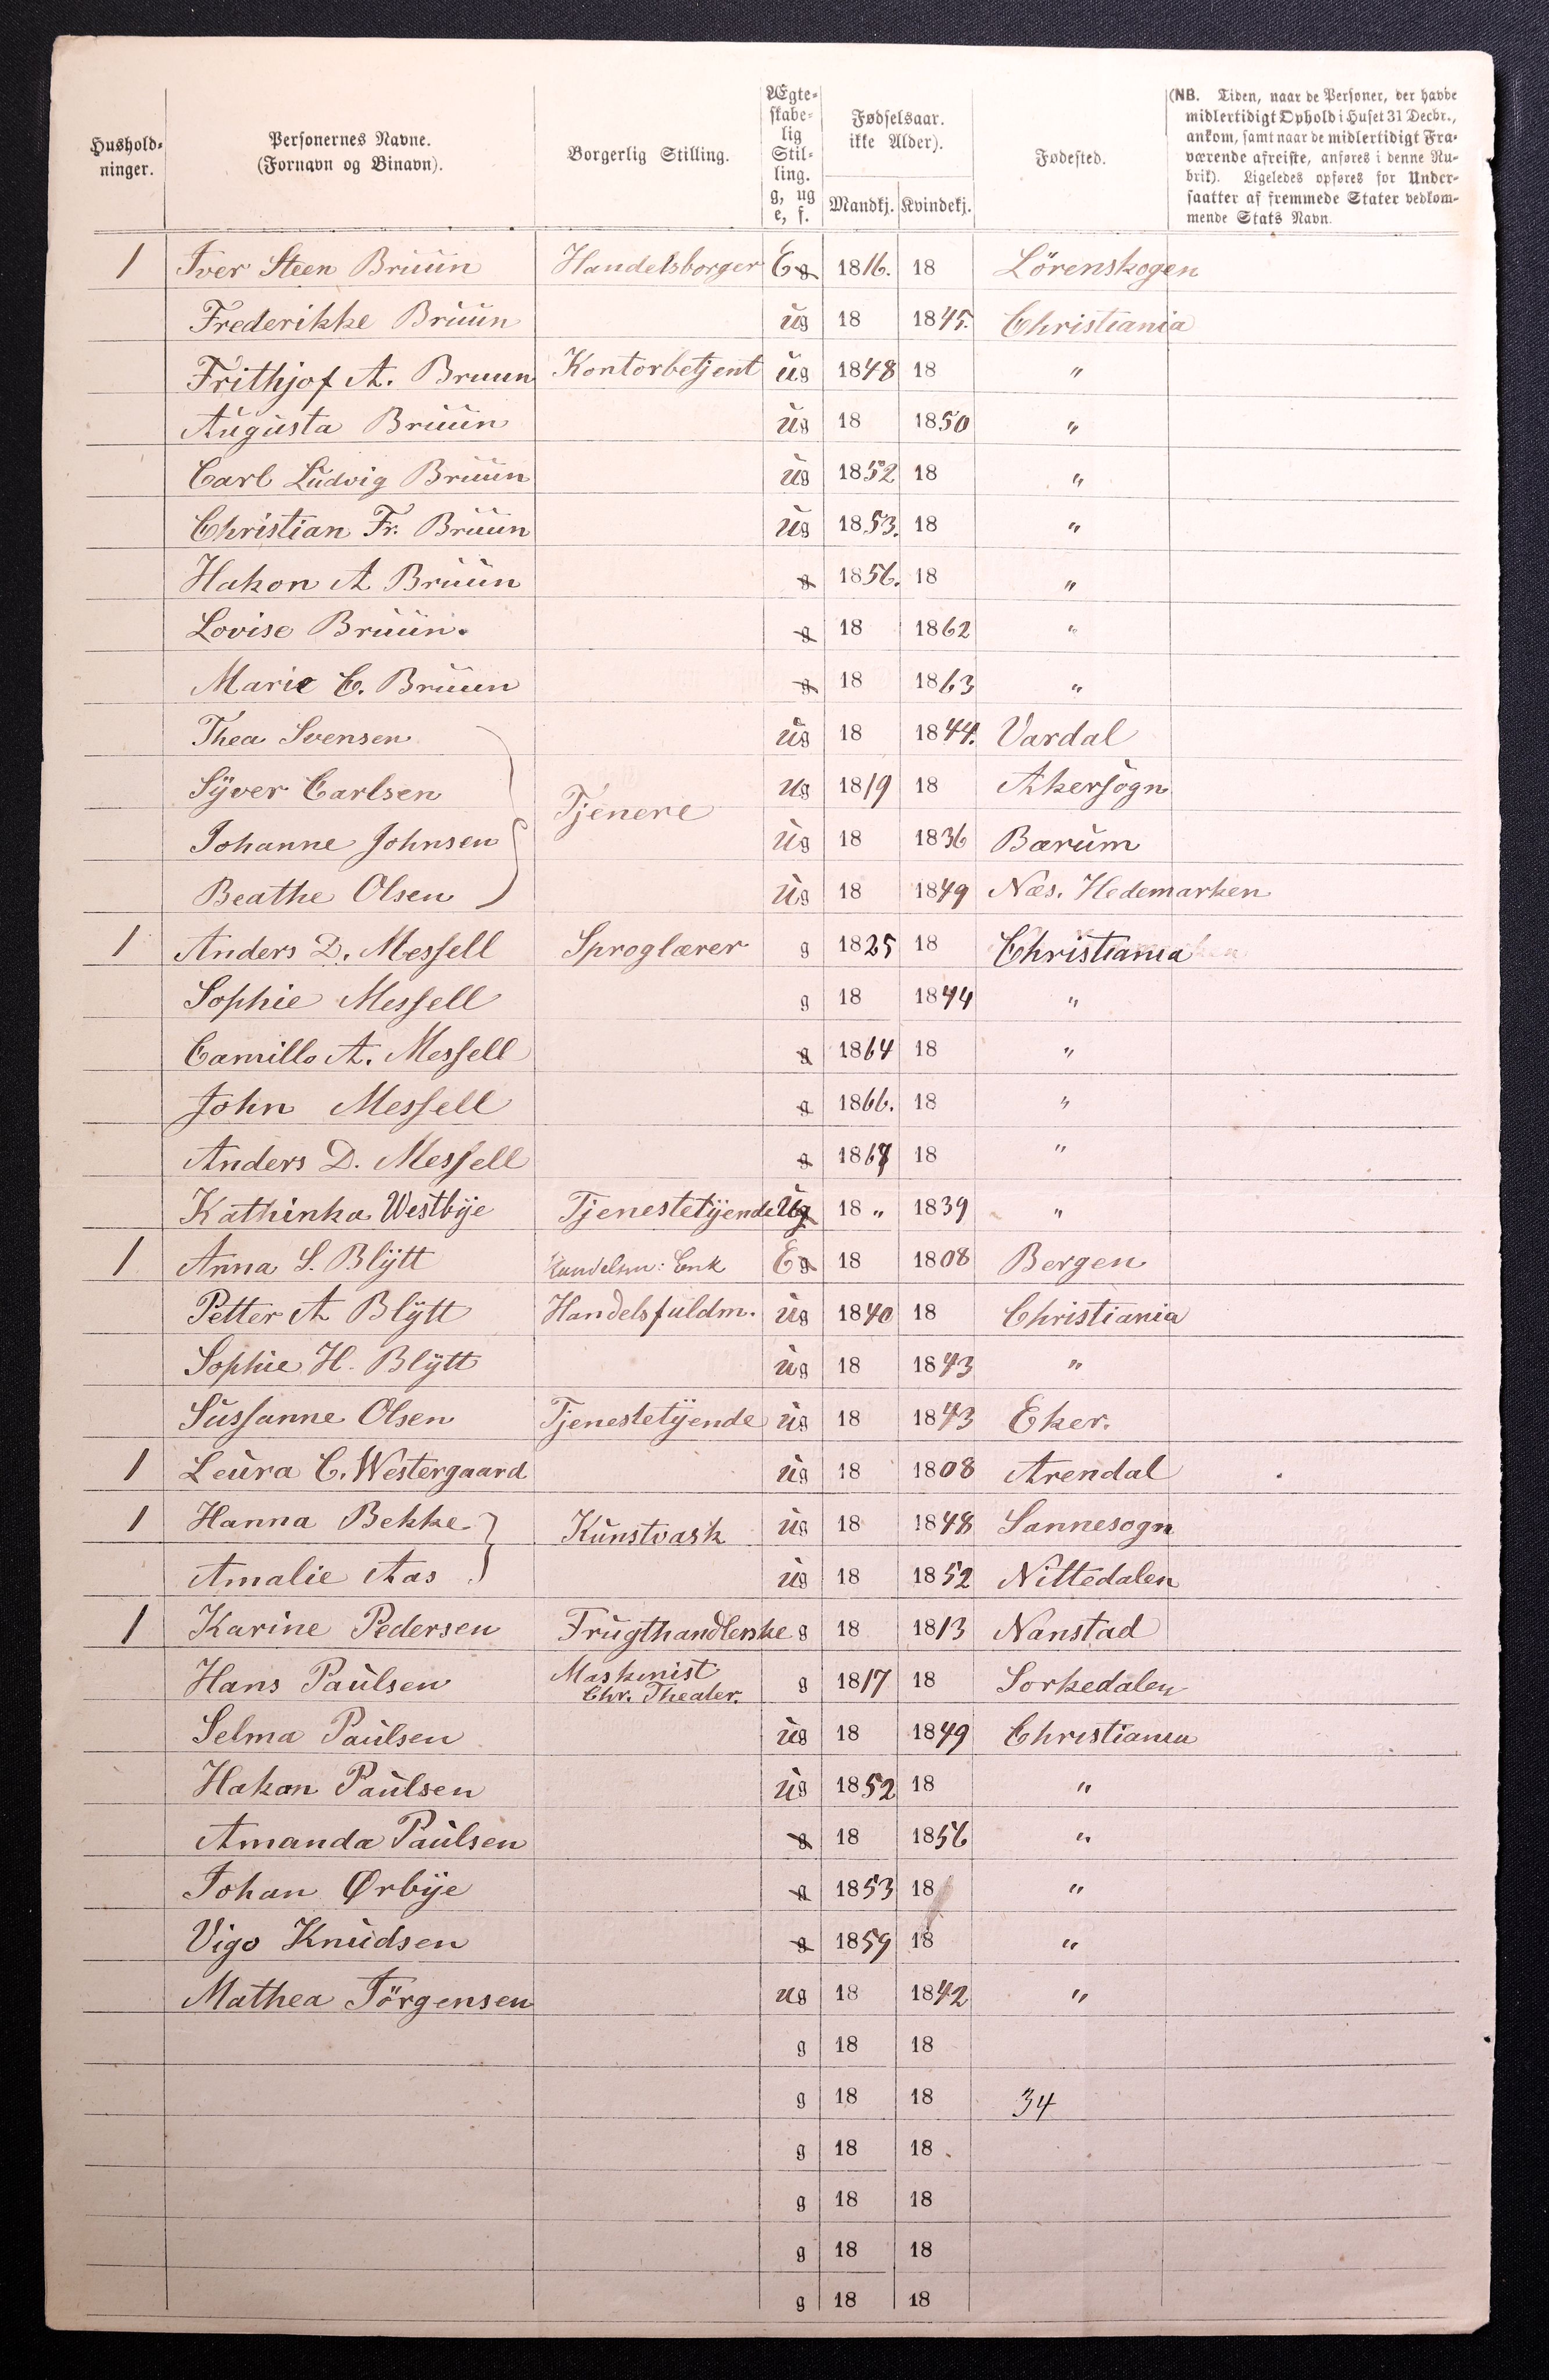 Hushold-
ninger.
Personernes Navne.
(Fornavn og Binavn).
Borgerlig Stilling.
Ægte-
skabe-
lig
Stil-
ling.
g, ug
e, f.
Fødselsaar.
ikke Alder).
Mandkj. Kvindekj.
Fødested.
(NB. Tiden, naar de Personer, der havde
midlertidigt Ophold i Huset 31 Decbr.,
ankom, samt naar de midlertidigt Fra-
værende afreiste, anføres i denne Ru-
brik). Ligeledes opføres for Under-
saatter af fremmede Stater vedkom-
mende Stats Navn.
1 Iver Steen Bruun Handelsborger E g 1816. 18 Lörenskogen
Frederikke Bruun ug 18 1845. Christiania
Frithjof A. Bruun Kontorbetjent ug 1848 18 "
Augusta Bruun ug 18 1850 "
Carl Ludvig Bruun ug 1852 18 "
Christian Fr. Bruun ug 1853. 18 "
Hakon A Bruun g 1856. 18 "
Lovise Bruun. g 18 1862 "
Marie C. Bruun g 18 1863 "
Thea Svensen ug 18 1844. Vardal
Syver Carlsen ug 1819 18 Akersogn
Tjenere
Johanne Johnsen ug 18 1836 Bærum
Beathe Olsen ug 18 1849 Næs. Hedemarken
1 Anders D. Messell Sproglærer g 1825 18 Christiania
Sophie Messell g 18 1844 "
Camillo A. Messell g 1864 18 "
John Messell g 1866. 18 "
Anders D. Messell g 1867 18 "
Kathinka Westbye Tjenestetyende Ug 18 " 1839 "
1 Anna S. Blytt Handelsm: Enk E g 18 1808 Bergen
Petter A Blytt Handelsfuldm. ug 1840 18 Christiania
Sophie H. Blytt ug 18 1843 "
Sussanne Olsen Tjenestetyende ug 18 1843 Eker.
1 Leura C. Westergaard ug 18 1808 Arendal
1 Hanna Bekke Kunstvask ug 18 1848 Sannesogn
Amalie Aas ug 18 1852 Nittedalen
1 Karine Pedersen Frugthandlerske g 18 1813 Nanstad
Hans Paulsen Maskinist g 1817 18 Sorkedalen
Chr. Theater.
Selma Paulsen ug 18 1849 Christiania
Hakon Paulsen ug 1852 18 "
Amanda Paulsen g 18 1856 "
Johan Ørbye g 1853 18 "
Vigo Knudsen g 1859 18 "
Mathea Törgensen ug 18 1842 "
g 18 18
g 18 18 34
g 18 18
g 18 18
g 18 18
g 18 18